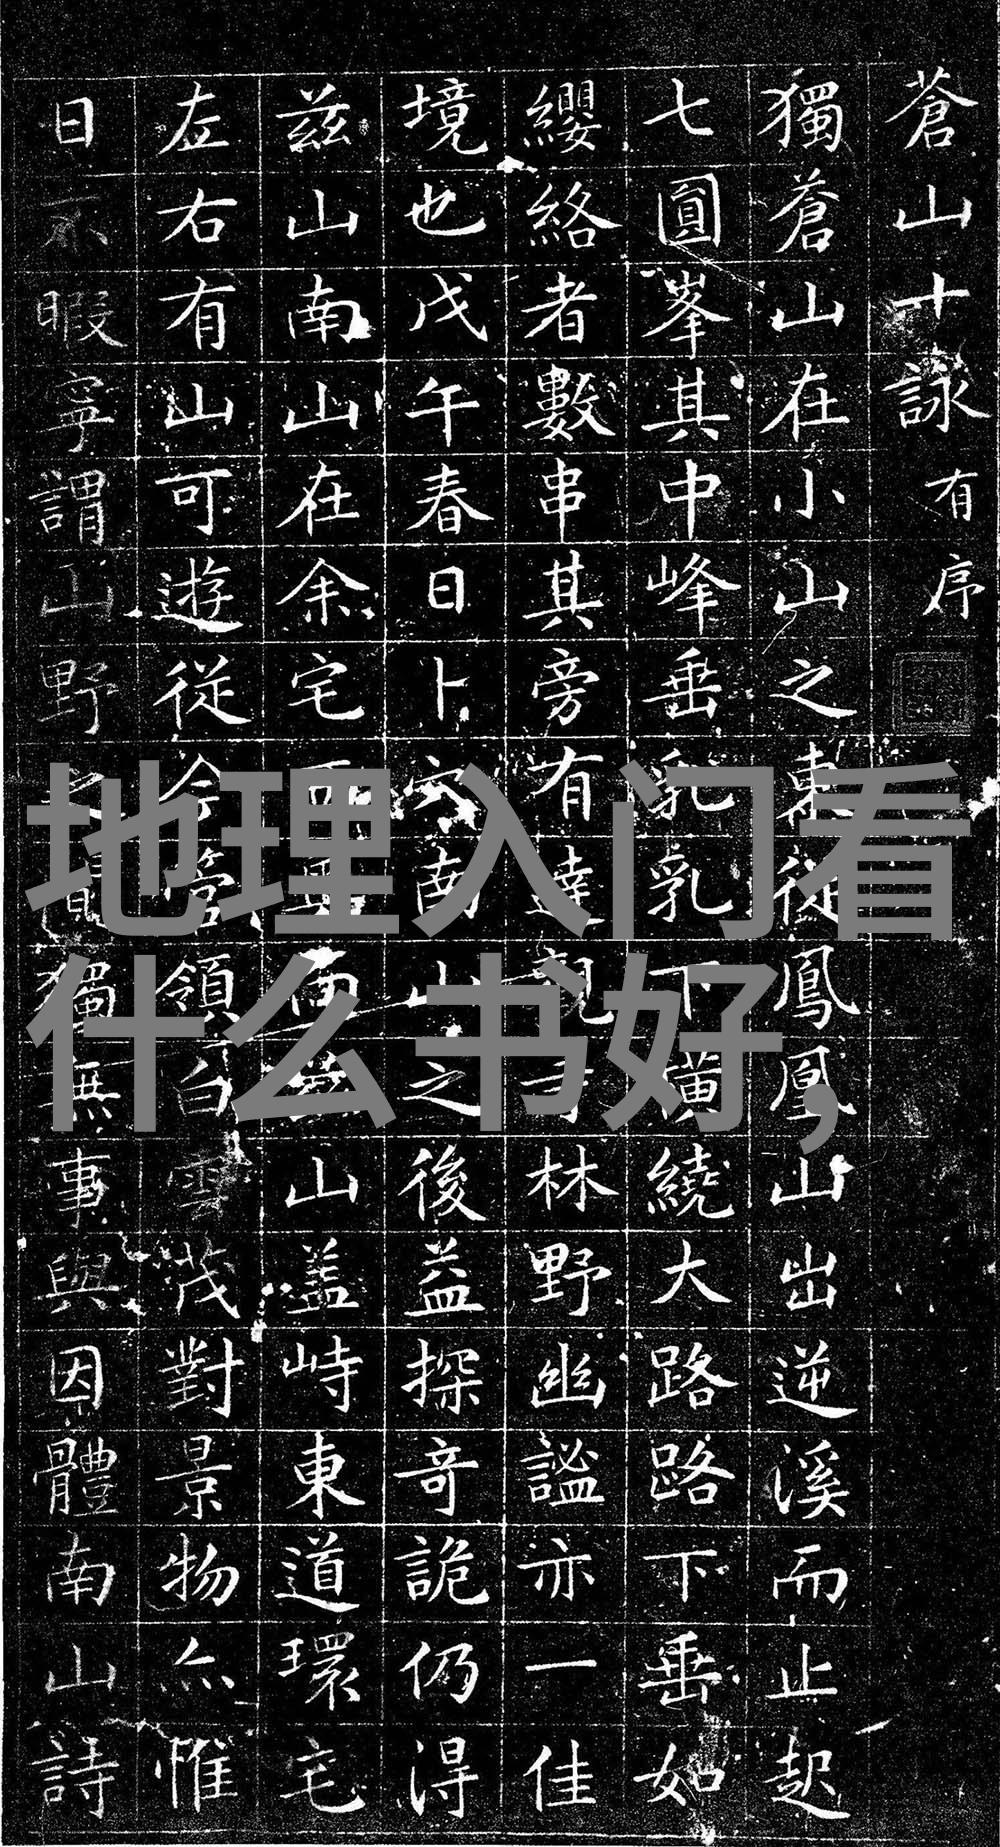 蒼山十詠 有序
獨蒼山在小山之東從鳳凰山出逆溪而止起
七圓峯其中峰垂乳乳下橫繞大路路下垂如
纓絡者數串其旁有達林野幽謐亦一佳
境也戊午春日卜穴南山之後益探奇詭仍得
茲山南山在余宅西山盖峙東道環宅
左右有山可遊從領白雲茂對景物亦惟
日不暇寧謂山野獨無事與因體南山詩
地理入门看
什么书好,